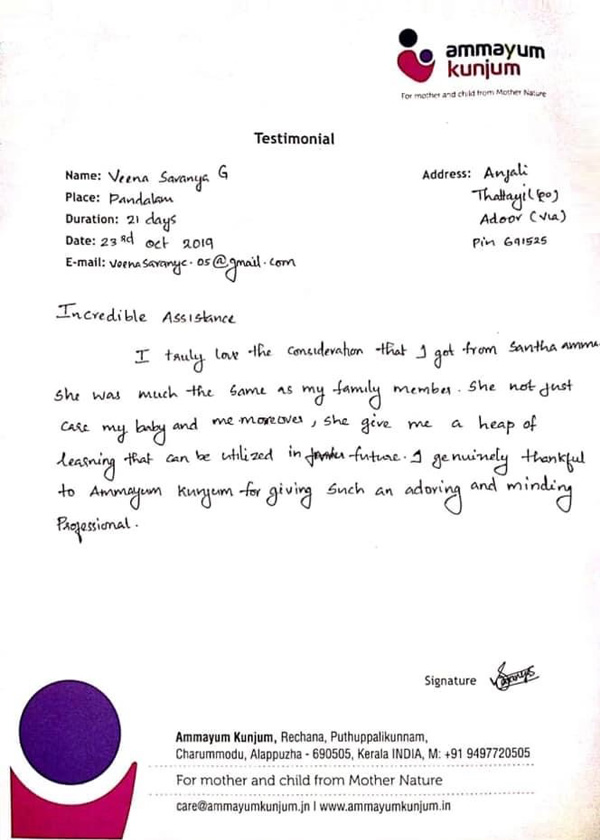 ammayum
kunjum
For mother and child from Mother Nature
Testimonial
Name: Veena Saranya G
Place: Pandalam
Duration: 21 days
Date: 23rd Oct 2019
E-mail: veenasaranyc.05@gmail.com
Address: Anjali
Thattayil (po)
Adoor (via)
Pin 691525
Incredible Assistance
I truly love the consideration that I got from Santha amma
She was much the same as my family member. She not just
care my baby and me moreover, she give me a heap of
learning that can be utilized in future. I genuinely thankful
to Ammayum Kunjum for giving such an adoring and minding
Professional.
Signature
Ammayum Kunjum, Rechana, Puthuppalikunnam,
Charummodu, Alappuzha - 690505, Kerala INDIA, M: +91 9497720505
For mother and child from Mother Nature
care@ammayumkunjum.in I www.ammayumkunjum.in